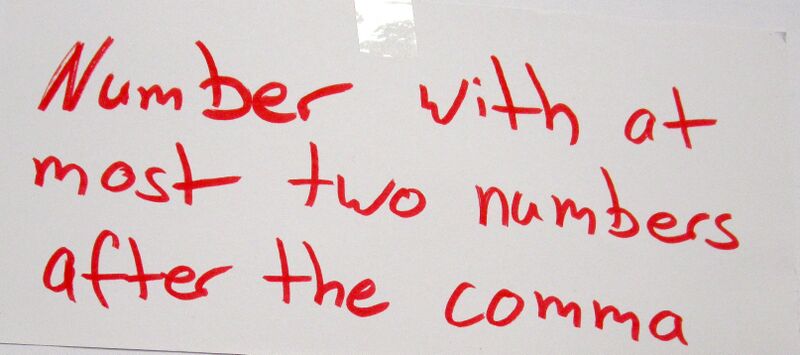 Number with at
most two numbers
after the comma